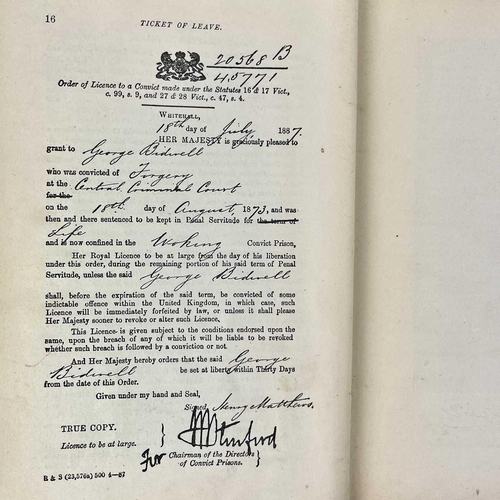 16
TICKET OF LEAVE.
20568 B
45771
Order of Licence to a Convict made under the Statutes 16 & 17 Vict.,
c. 99, s. 9, and 27 & 28 Vict., c. 47, s. 4.
WHITEHALL,
18th day of July 1887.
HER MAJESTY is graciously pleased to
grant to George Bidwell
who was convicted of Forgery
at the Central Criminal Court
for the
on the 18th day of August, 1873, and was
then and there sentenced to be kept in Penal Servitude for the term of
Life
and is now confined in the Woking Convict Prison,
Her Royal Licence to be at large from the day of his liberation
under this order, during the remaining portion of his said term of Penal
Servitude, unless the said George Bidwell
shall, before the expiration of the said term, be convicted of some
indictable offence within the United Kingdom, in which case, such
Licence will be immediately forfeited by law, or unless it shall please
Her Majesty sooner to revoke or alter such Licence.
This Licence is given subject to the conditions endorsed upon the
same, upon the breach of any of which it will be liable to be revoked
whether such breach is followed by a conviction or not.
And Her Majesty hereby orders that the said George
Bidwell be set at liberty within Thirty Days
from the date of this Order.
Given under my hand and Seal,
Signed, Henry Matthews.
TRUE COPY.
Licence to be at large.
For Chairman of the Directors
of Convict Prisons.
R & S (23,576a) 500 4-87